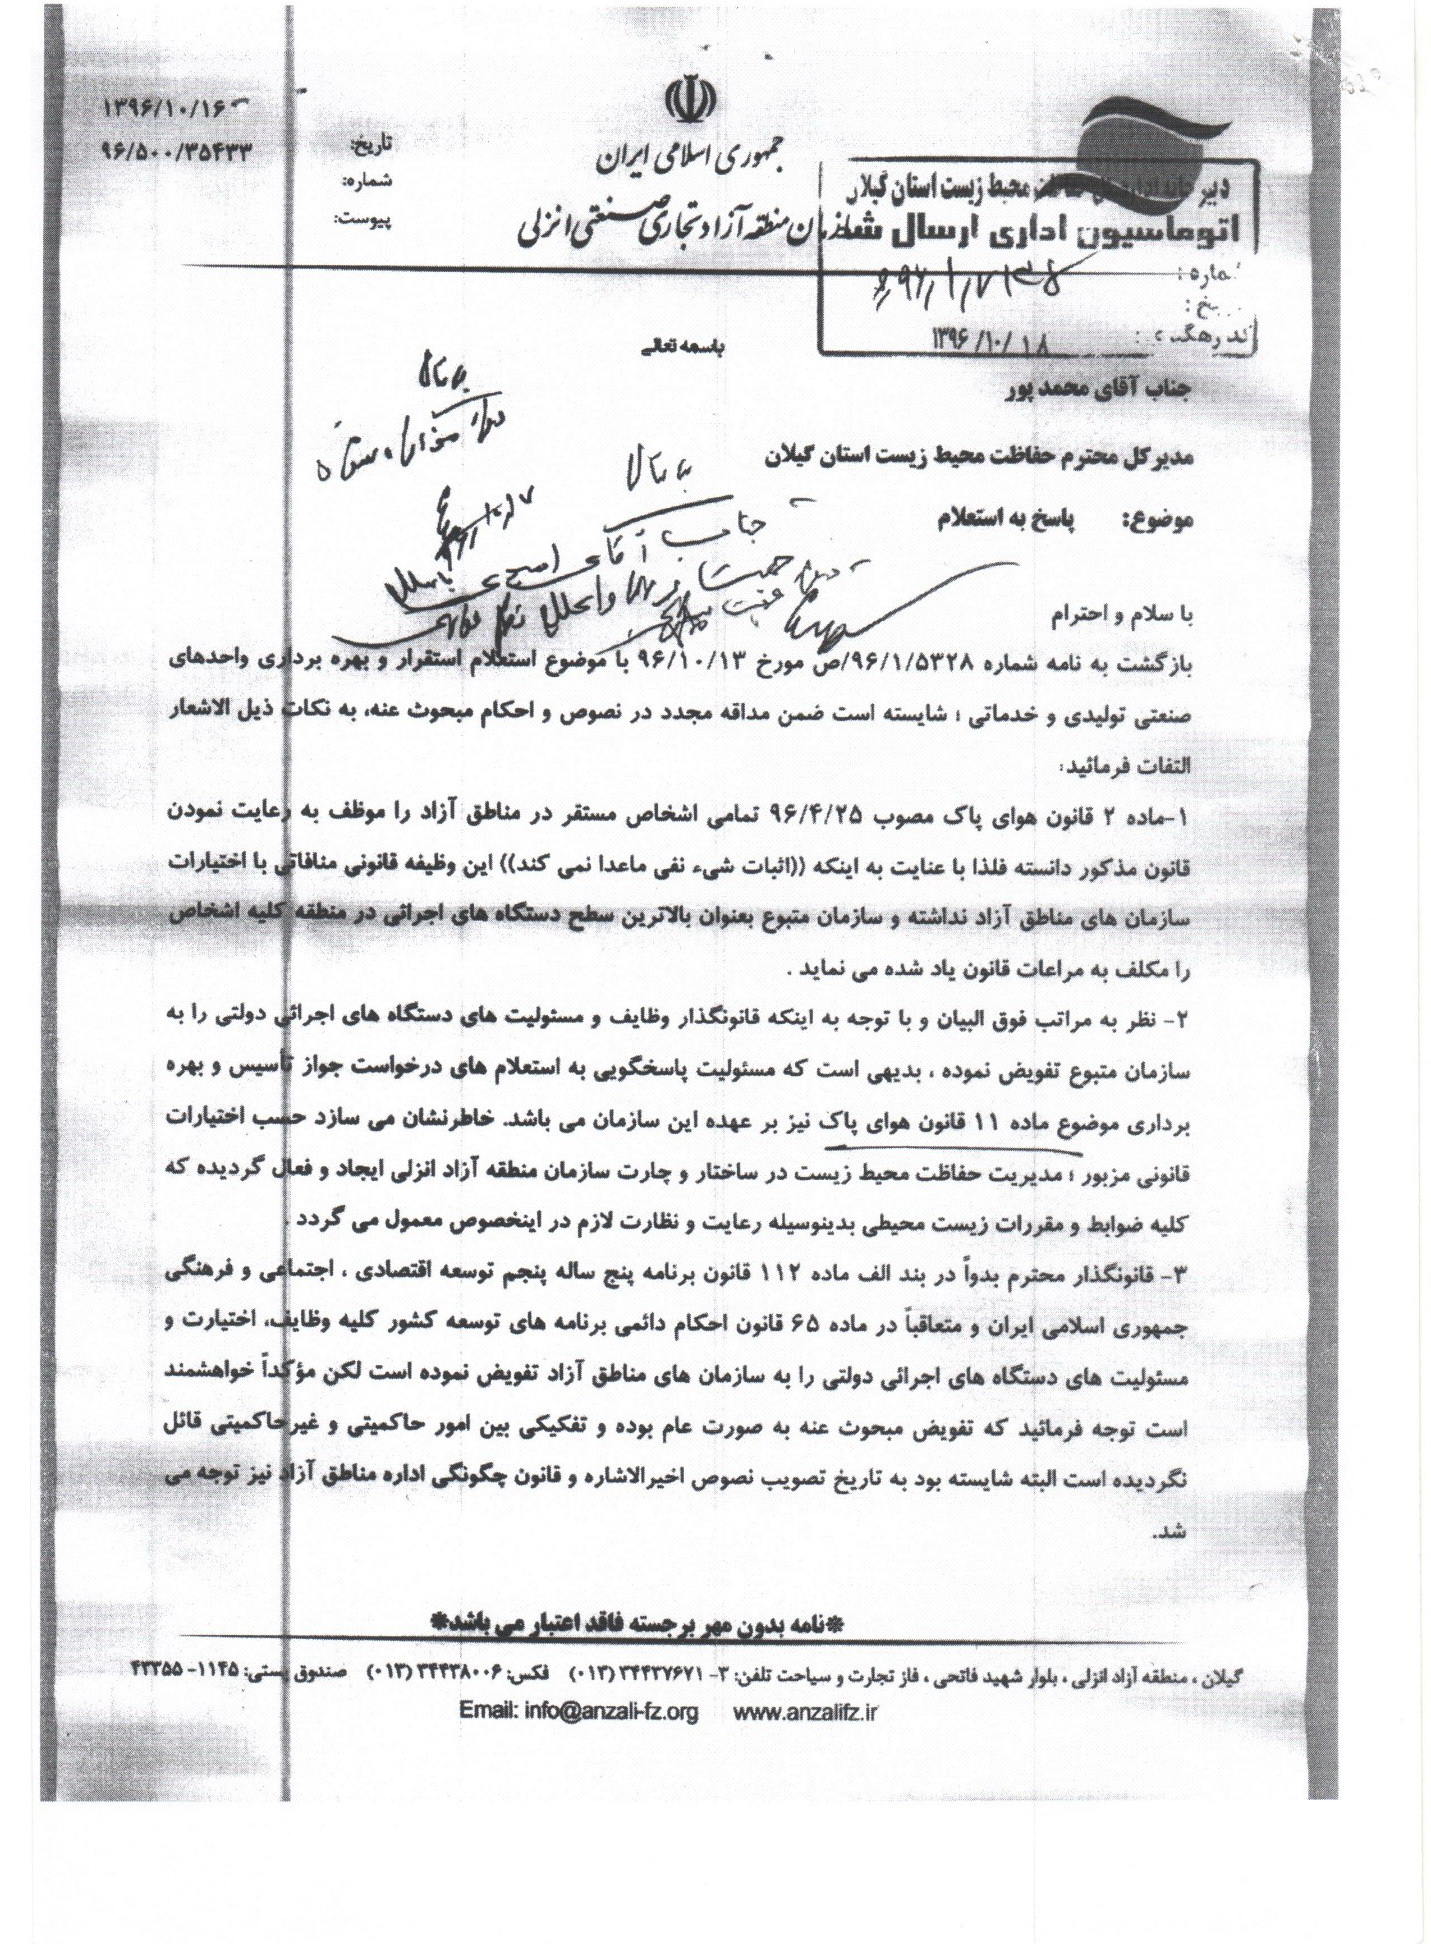 ۱۳۹۶/۱۰/۱۶
۹۶/۵۰۰/۳۵۴۳۳
تاریخ:
شماره:
پیوست:
جمهوری اسلامی ایران
سازمان منطقه آزاد تجاری صنعتی انزلی
محیط زیست استان گیلان
اتوماسیون اداری ارسال شد
شماره:
۱۳۹۶/۱۰/۱۸
باسمه تعالی
جناب آقای محمد پور
مدیرکل محترم حفاظت محیط زیست استان گیلان
موضوع: پاسخ به استعلام
با سلام و احترام
بازگشت به نامه شماره ۹۶/۱/۵۳۲۸/ص مورخ ۹۶/۱۰/۱۳ با موضوع استعلام استقرار و بهره برداری واحدهای
صنعتی تولیدی و خدماتی ؛ شایسته است ضمن مداقه مجدد در نصوص و احکام مبحوث عنه، به نکات ذیل الاشعار
التفات فرمائید:
۱-ماده ۲ قانون هوای پاک مصوب ۹۶/۴/۲۵ تمامی اشخاص مستقر در مناطق آزاد را موظف به رعایت نمودن
قانون مذکور دانسته فلذا با عنایت به اینکه ((اثبات شیء نفی ماعدا نمی کند)) این وظیفه قانونی منافاتی با اختیارات
سازمان های مناطق آزاد نداشته و سازمان متبوع بعنوان بالاترین سطح دستگاه های اجرائی در منطقه کلیه اشخاص
را مکلف به مراعات قانون یاد شده می نماید .
۲- نظر به مراتب فوق البیان و با توجه به اینکه قانونگذار وظایف و مسئولیت های دستگاه های اجرائی دولتی را به
سازمان متبوع تفویض نموده ، بدیهی است که مسئولیت پاسخگویی به استعلام های درخواست جواز تأسیس و بهره
برداری موضوع ماده ۱۱ قانون هوای پاک نیز بر عهده این سازمان می باشد. خاطرنشان می سازد حسب اختیارات
قانونی مزبور ؛ مدیریت حفاظت محیط زیست در ساختار و چارت سازمان منطقه آزاد انزلی ایجاد و فعال گردیده که
کلیه ضوابط و مقررات زیست محیطی بدینوسیله رعایت و نظارت لازم در اینخصوص معمول می گردد .
۳- قانونگذار محترم بدواً در بند الف ماده ۱۱۲ قانون برنامه پنج ساله پنجم توسعه اقتصادی ، اجتماعی و فرهنگی
جمهوری اسلامی ایران و متعاقباً در ماده ۶۵ قانون احکام دائمی برنامه های توسعه کشور کلیه وظایف، اختیارت و
مسئولیت های دستگاه های اجرائی دولتی را به سازمان های مناطق آزاد تفویض نموده است لکن مؤکداً خواهشمند
است توجه فرمائید که تفویض مبحوث عنه به صورت عام بوده و تفکیکی بین امور حاکمیتی و غیرحاکمیتی قائل
نگردیده است البته شایسته بود به تاریخ تصویب نصوص اخیرالاشاره و قانون چگونگی اداره مناطق آزاد نیز توجه می
شد.
*نامه بدون مهر برجسته فاقد اعتبار می باشد*
گیلان ، منطقه آزاد انزلی ، بلوار شهید فاتحی ، فاز تجارت و سیاحت تلفن: ۳- ۳۴۴۳۷۶۷۱ (۰۱۳) فکس: ۳۴۴۳۸۰۰۶ (۰۱۳) صندوق پستی: ۱۱۴۵- ۴۳۳۵۵
Email: info@anzali-fz.org www.anzalifz.ir